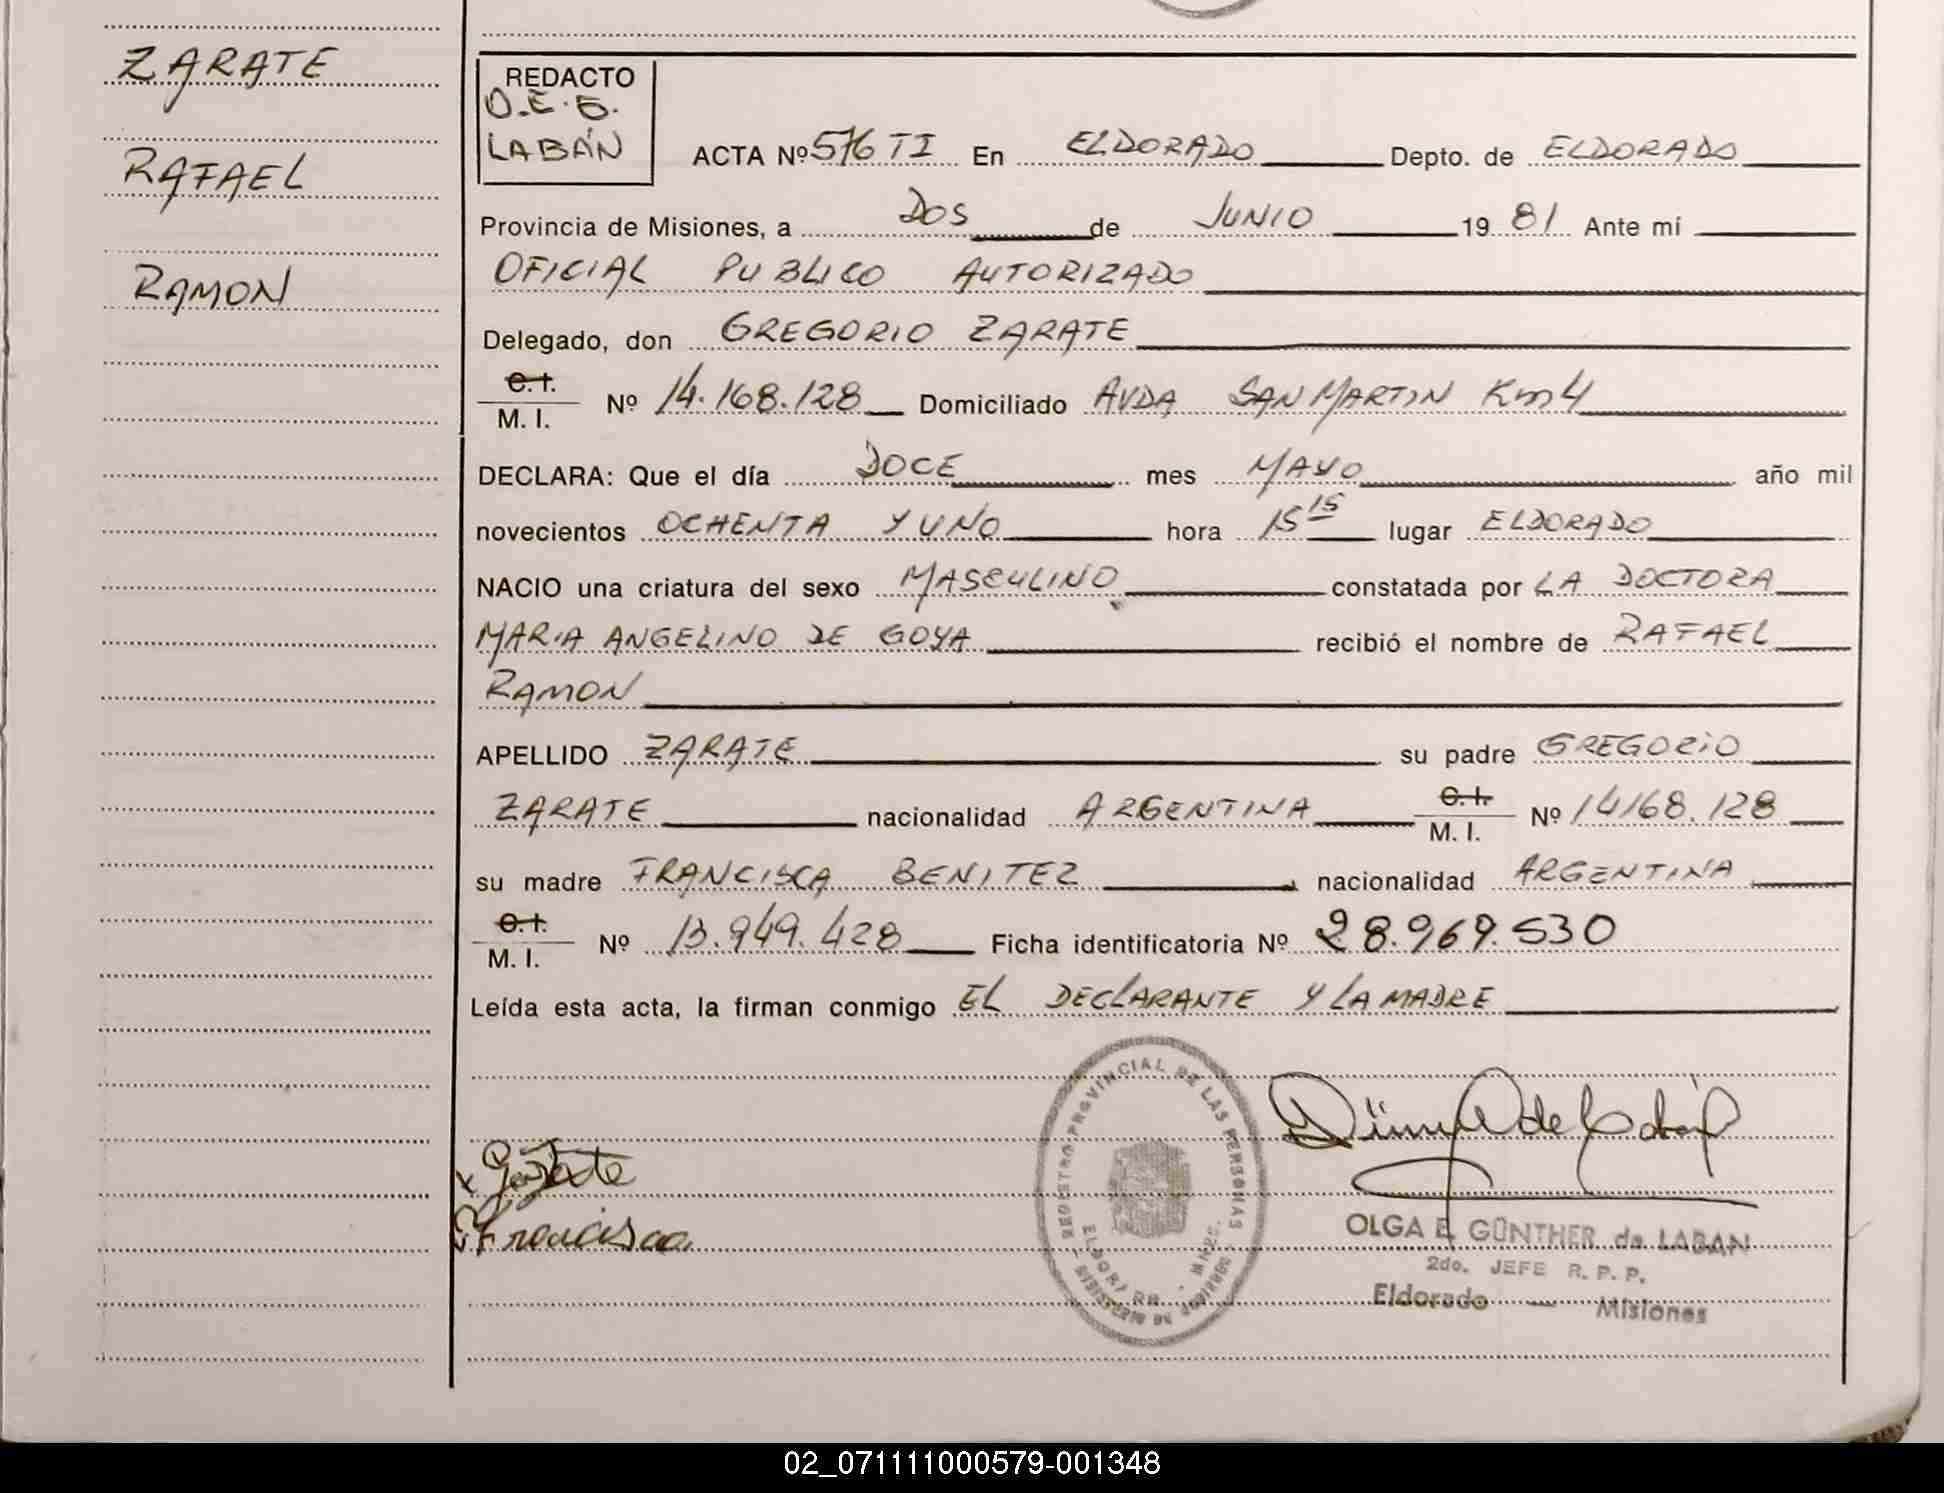 ZARATE
RAFAEL
RAMON
REDACTO
O.E.G.
LABÁN
ACTA Nº 576 TI En ELDORADO Depto. de ELDORADO
Provincia de Misiones, a DOS de JUNIO 1981 Ante mí
OFICIAL PUBLICO AUTORIZADO
Delegado, don GREGORIO ZARATE
C. I.
M. I. Nº 14.168.128 Domiciliado AVDA SAN MARTIN Km 4
DECLARA: Que el día DOCE mes MAYO año mil
novecientos OCHENTA Y UNO hora 15 15 lugar ELDORADO
NACIO una criatura del sexo MASCULINO constatada por LA DOCTORA
MARIA ANGELINO DE GOYA recibió el nombre de RAFAEL
RAMON
APELLIDO ZARATE su padre GREGORIO
ZARATE nacionalidad ARGENTINA C. I. M. I. Nº 14168.128
su madre FRANCISCA BENITEZ nacionalidad ARGENTINA
C. I.
M. I. Nº 13.949.428 Ficha identificatoria Nº 28.969.530
Leída esta acta, la firman conmigo EL DECLARANTE Y LA MADRE
REGISTRO PROVINCIAL DE LAS PERSONAS
Francisca
OLGA E. GÜNTHER de LABAN
2do. JEFE R. P. P.
Eldorado — Misiones
02_071111000579-001348